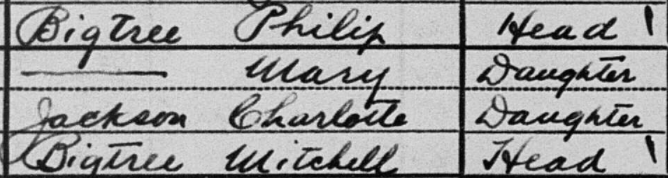 Bigtree Philip Head 1
— Mary Daughter
Jackson Charlotte Daughter
Bigtree Mitchell Head 1